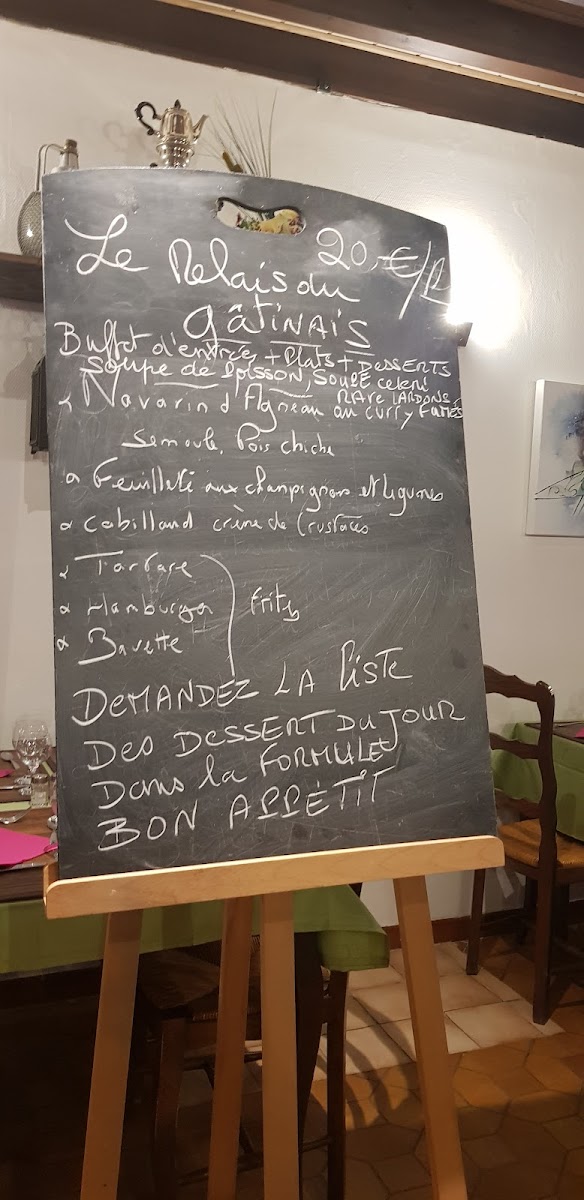 Le Relais du 20,-€/P
gâtinais
Buffet d'entrées + Plats + Desserts
Soupe de Poisson, Soupe céleri
Rave Lardons
Navarin d'Agneau au curry fumés
Semoule, Pois chiche
Feuilleté aux champignons et légumes
Cabillaud crème de Crustacés
Tartare
Hamburger Frites
Bavette
Demandez la liste
Des Dessert Du Jour
Dans la formule
Bon Appétit